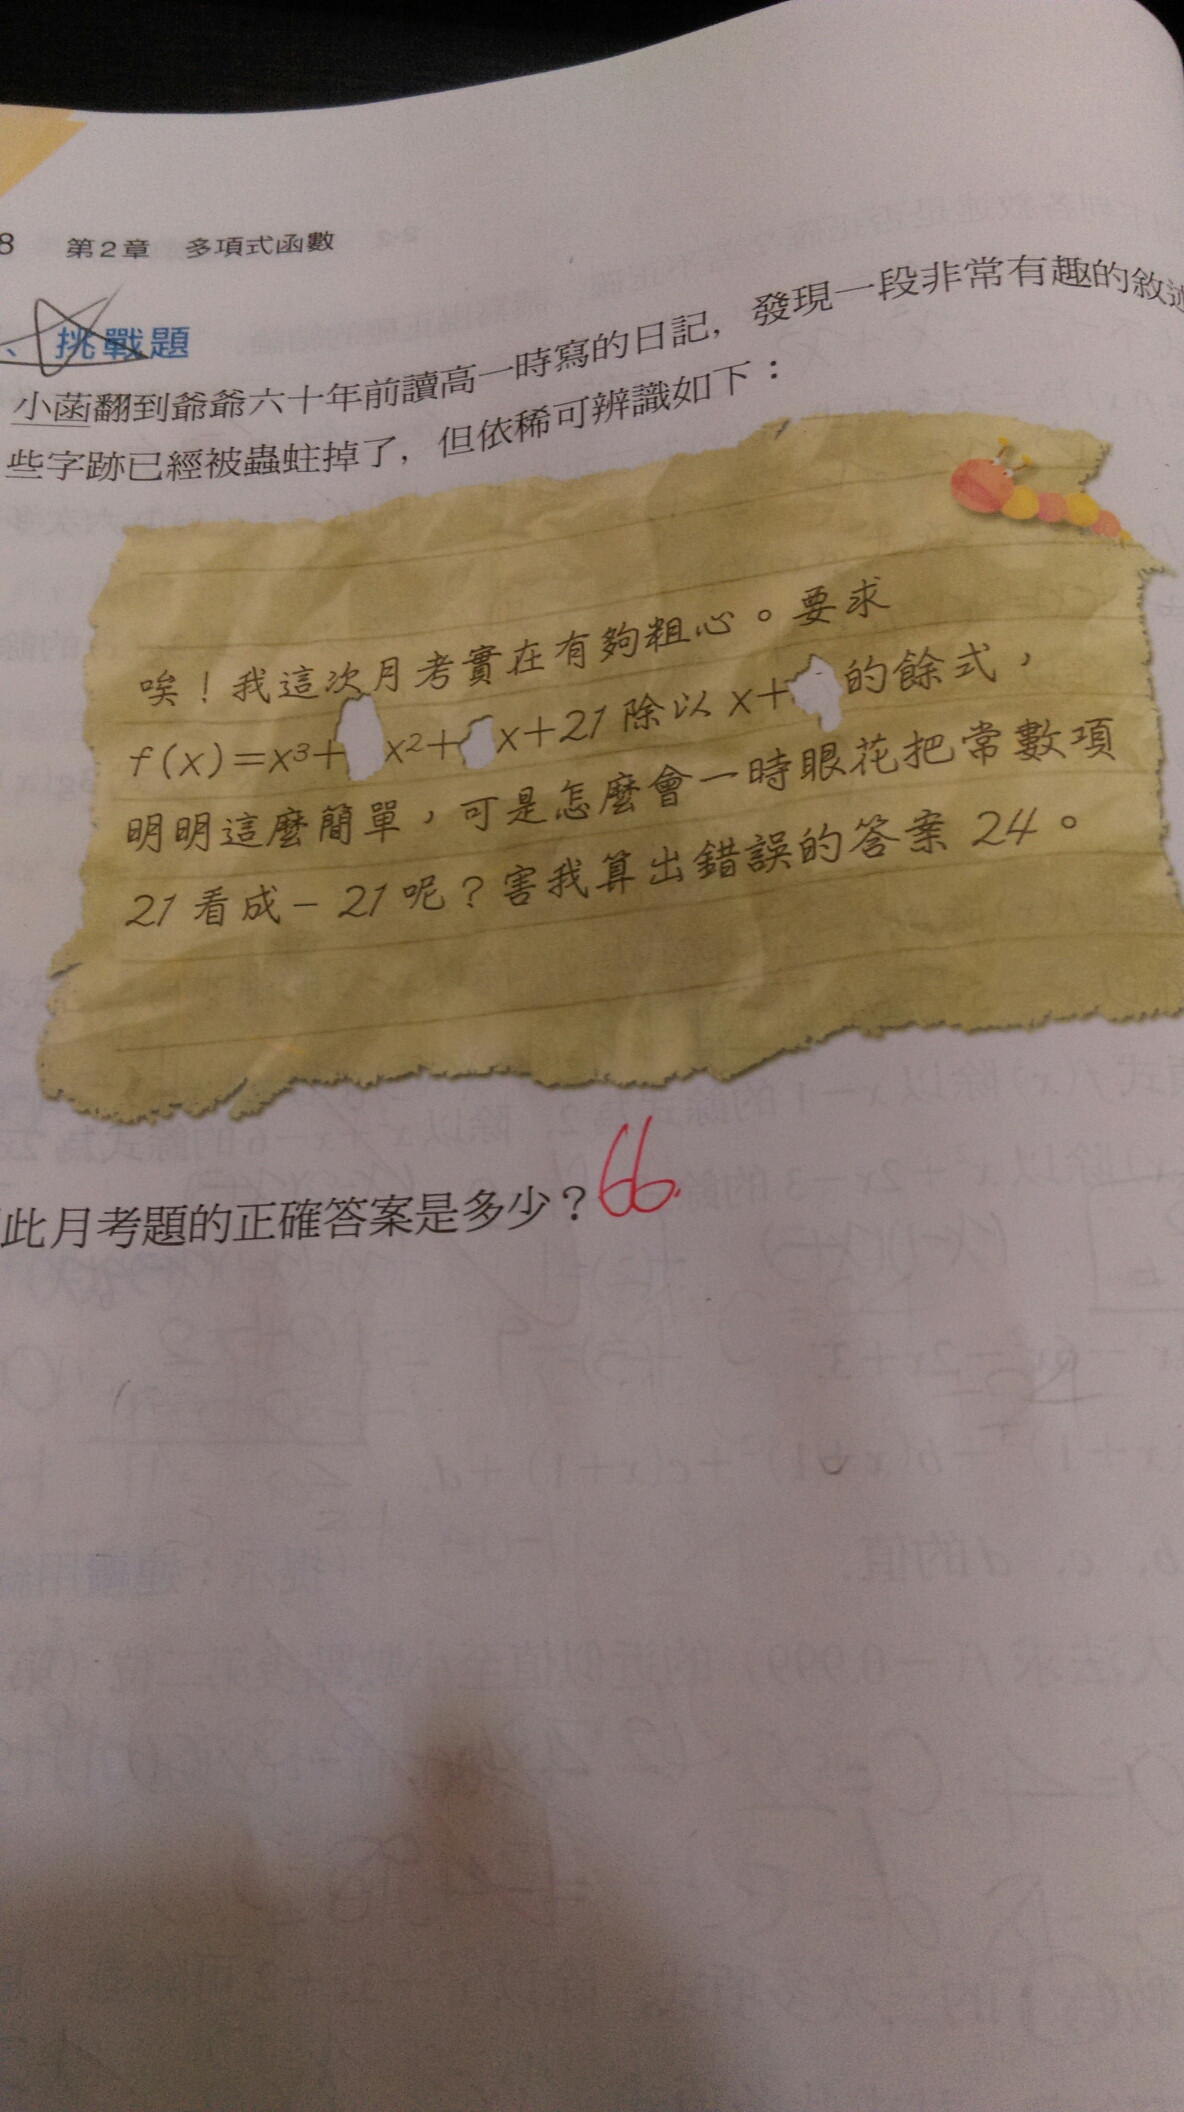 8 第2章 多項式函數
、挑戰題
小菡翻到爺爺六十年前讀高一時寫的日記，發現一段非常有趣的敘述
些字跡已經被蟲蛀掉了，但依稀可辨識如下：
唉！我這次月考實在有夠粗心。要求
f(x)=x³+ x²+ x+21 除以 x+ 的餘式，
明明這麼簡單，可是怎麼會一時眼花把常數項
21 看成－21 呢？害我算出錯誤的答案 24。
此月考題的正確答案是多少？66.